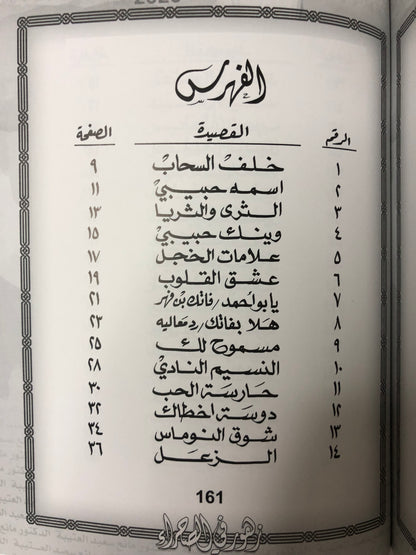 الفهرس
الرقم القصيدة الصفحة
١ خلف السحاب ٩
٢ اسمه حبيبي ١١
٣ الثرى والثريا ١٣
٤ وينك حبيبي ١٥
٥ علامات الخجل ١٧
٦ عشق القلوب ١٩
٧ يا بو احمد / فاتك بن فهر ٢١
٨ هلا بفاتك / رد معاليه ٢٣
٩ مسموح لك ٢٥
١٠ النسيم النادي ٢٨
١١ حارسة الحب ٣٠
١٢ دوسة اخطاك ٣٢
١٣ شوق النوماس ٣٤
١٤ الزعل ٣٦
161
زهور في الصحراء